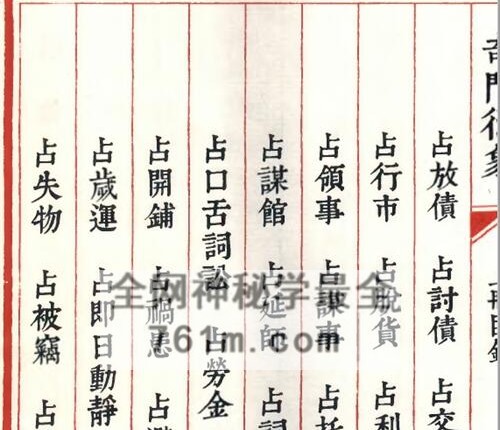 占放債 占討債 占交
占行市 占脫貨 占利
占領事 占謀事 占托
占謀館 占延師 占詞
占口舌詞訟 占勞金
占開鋪 占禍患 占
占歲運 占即日動靜
占失物 占被竊 占
全网神秘学最全
761m.com